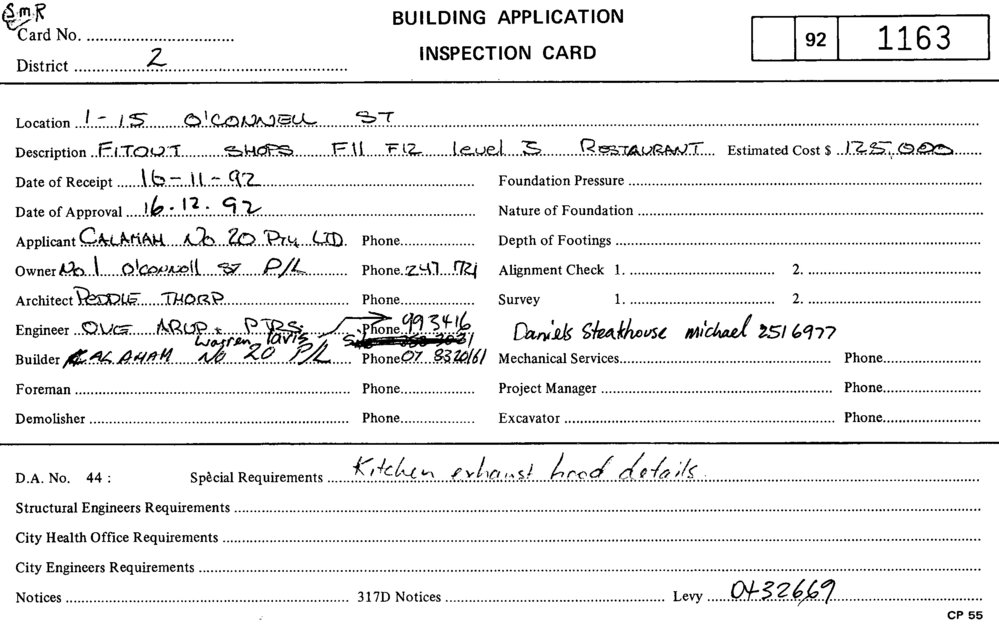 SMR
Card No.
BUILDING APPLICATION
INSPECTION CARD
92 1163
District 2
Location 1-15 O'CONNELL ST
Description FITOUT SHOPS F11 F12 level 3 RESTAURANT Estimated Cost $ 125,000
Date of Receipt 16-11-92 Foundation Pressure
Date of Approval 16.12.92 Nature of Foundation
Applicant CALAMAH No 20 Pty LTD. Phone Depth of Footings
Owner No 1 O'connell ST P/L Phone 247 1721 Alignment Check 1. 2.
Architect PEDDLE THORP Phone Survey 1. 2.
Engineer OVE ARUP + PTRS Phone 993416 Daniels Steakhouse michael 2516977
Warren
Builder CALAHAM No 20 P/L Phone 07 8320161 Mechanical Services Phone
Foreman Phone Project Manager Phone
Demolisher Phone Excavator Phone
D.A. No. 44 : Special Requirements Kitchen exhaust hood details.
Structural Engineers Requirements
City Health Office Requirements
City Engineers Requirements
Notices 317D Notices Levy 0432669
CP 55